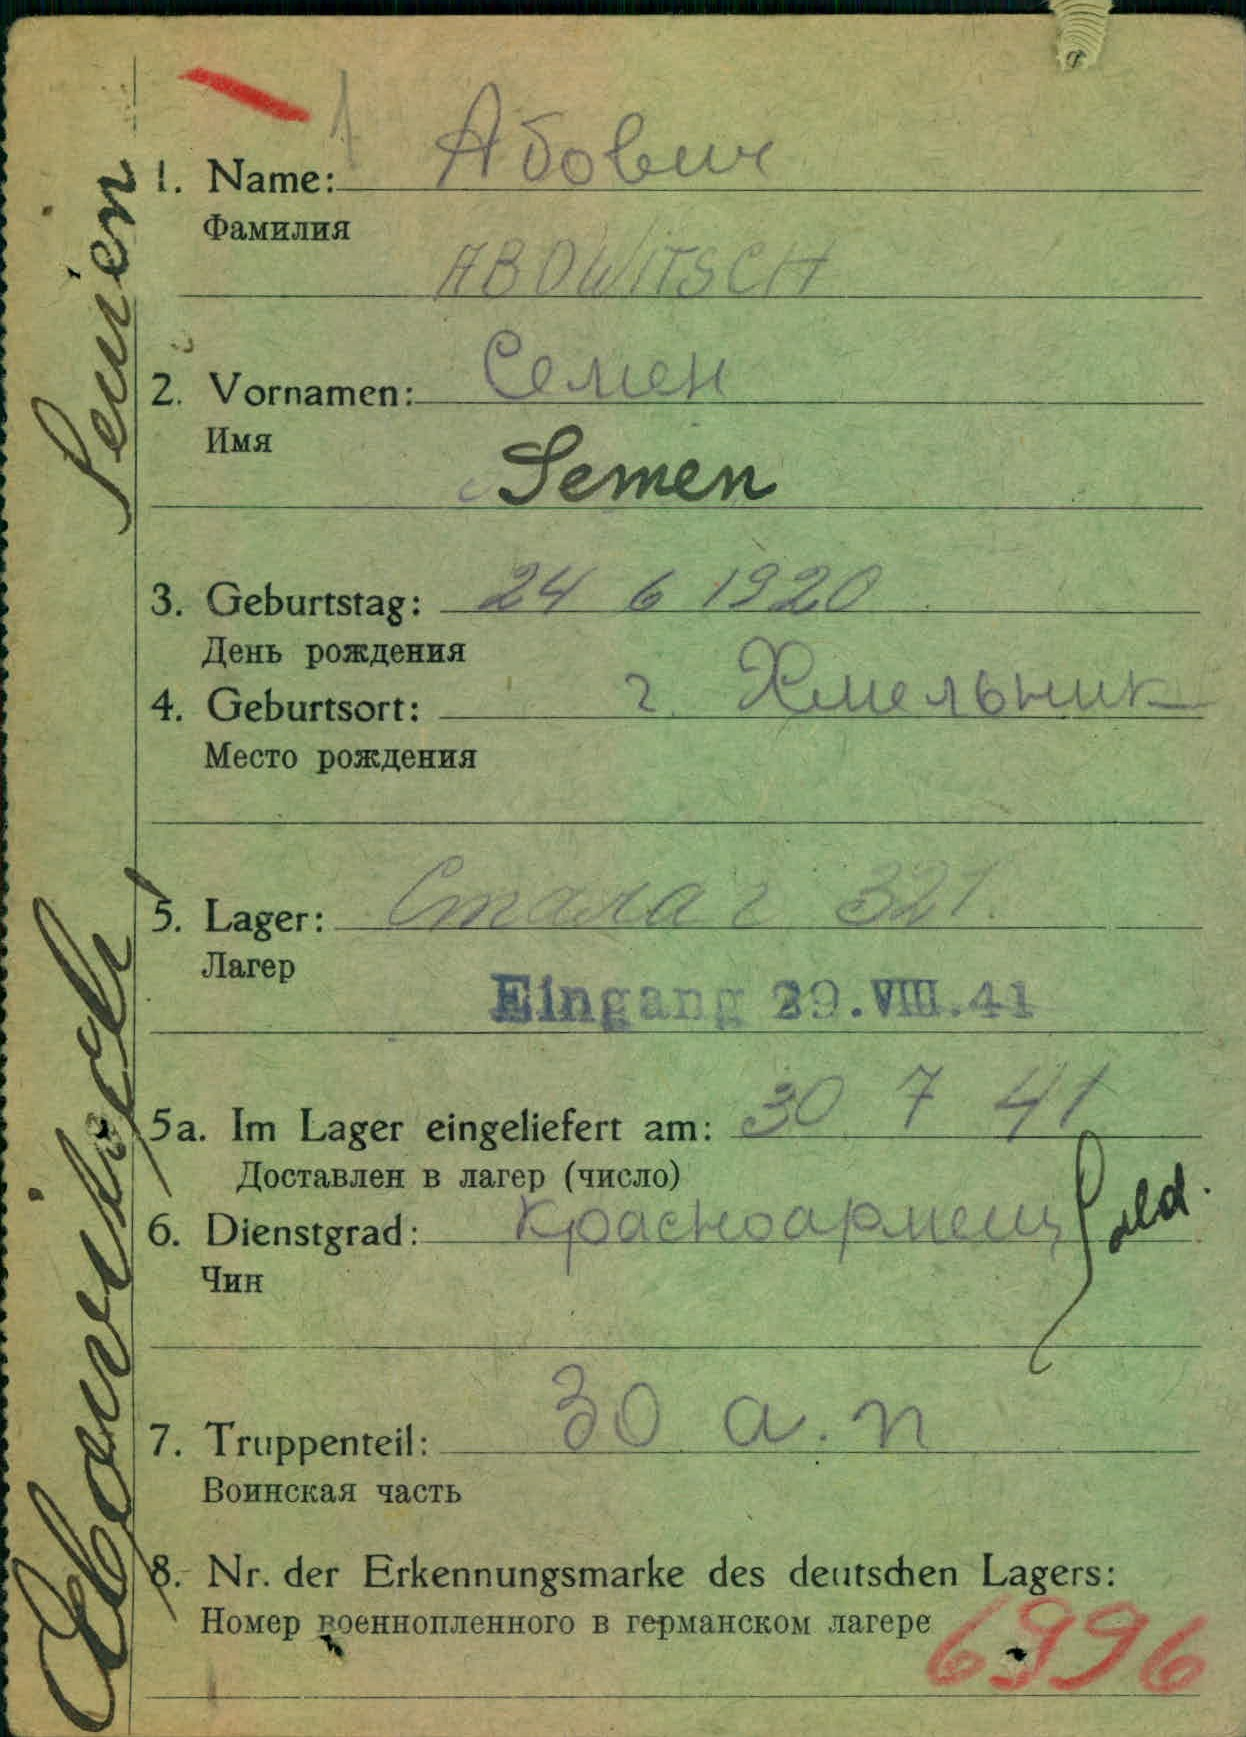 1. Name: Абович
Фамилия
ABOWITSCH
2. Vornamen: Семен
Имя
Semen
3. Geburtstag: 24 6 1920
День рождения
4. Geburtsort: г. Хмельник
Место рождения
5. Lager: Сталаг 321.
Лагер
Eingang 29.VIII.41
5a. Im Lager eingeliefert am: 30 7 41
Доставлен в лагер (число)
6. Dienstgrad: Красноармеец Sold.
Чин
7. Truppenteil: 30 а. п
Воинская часть
8. Nr. der Erkennungsmarke des deutschen Lagers:
Номер военнопленного в германском лагере
6996
Abowitsch Semen